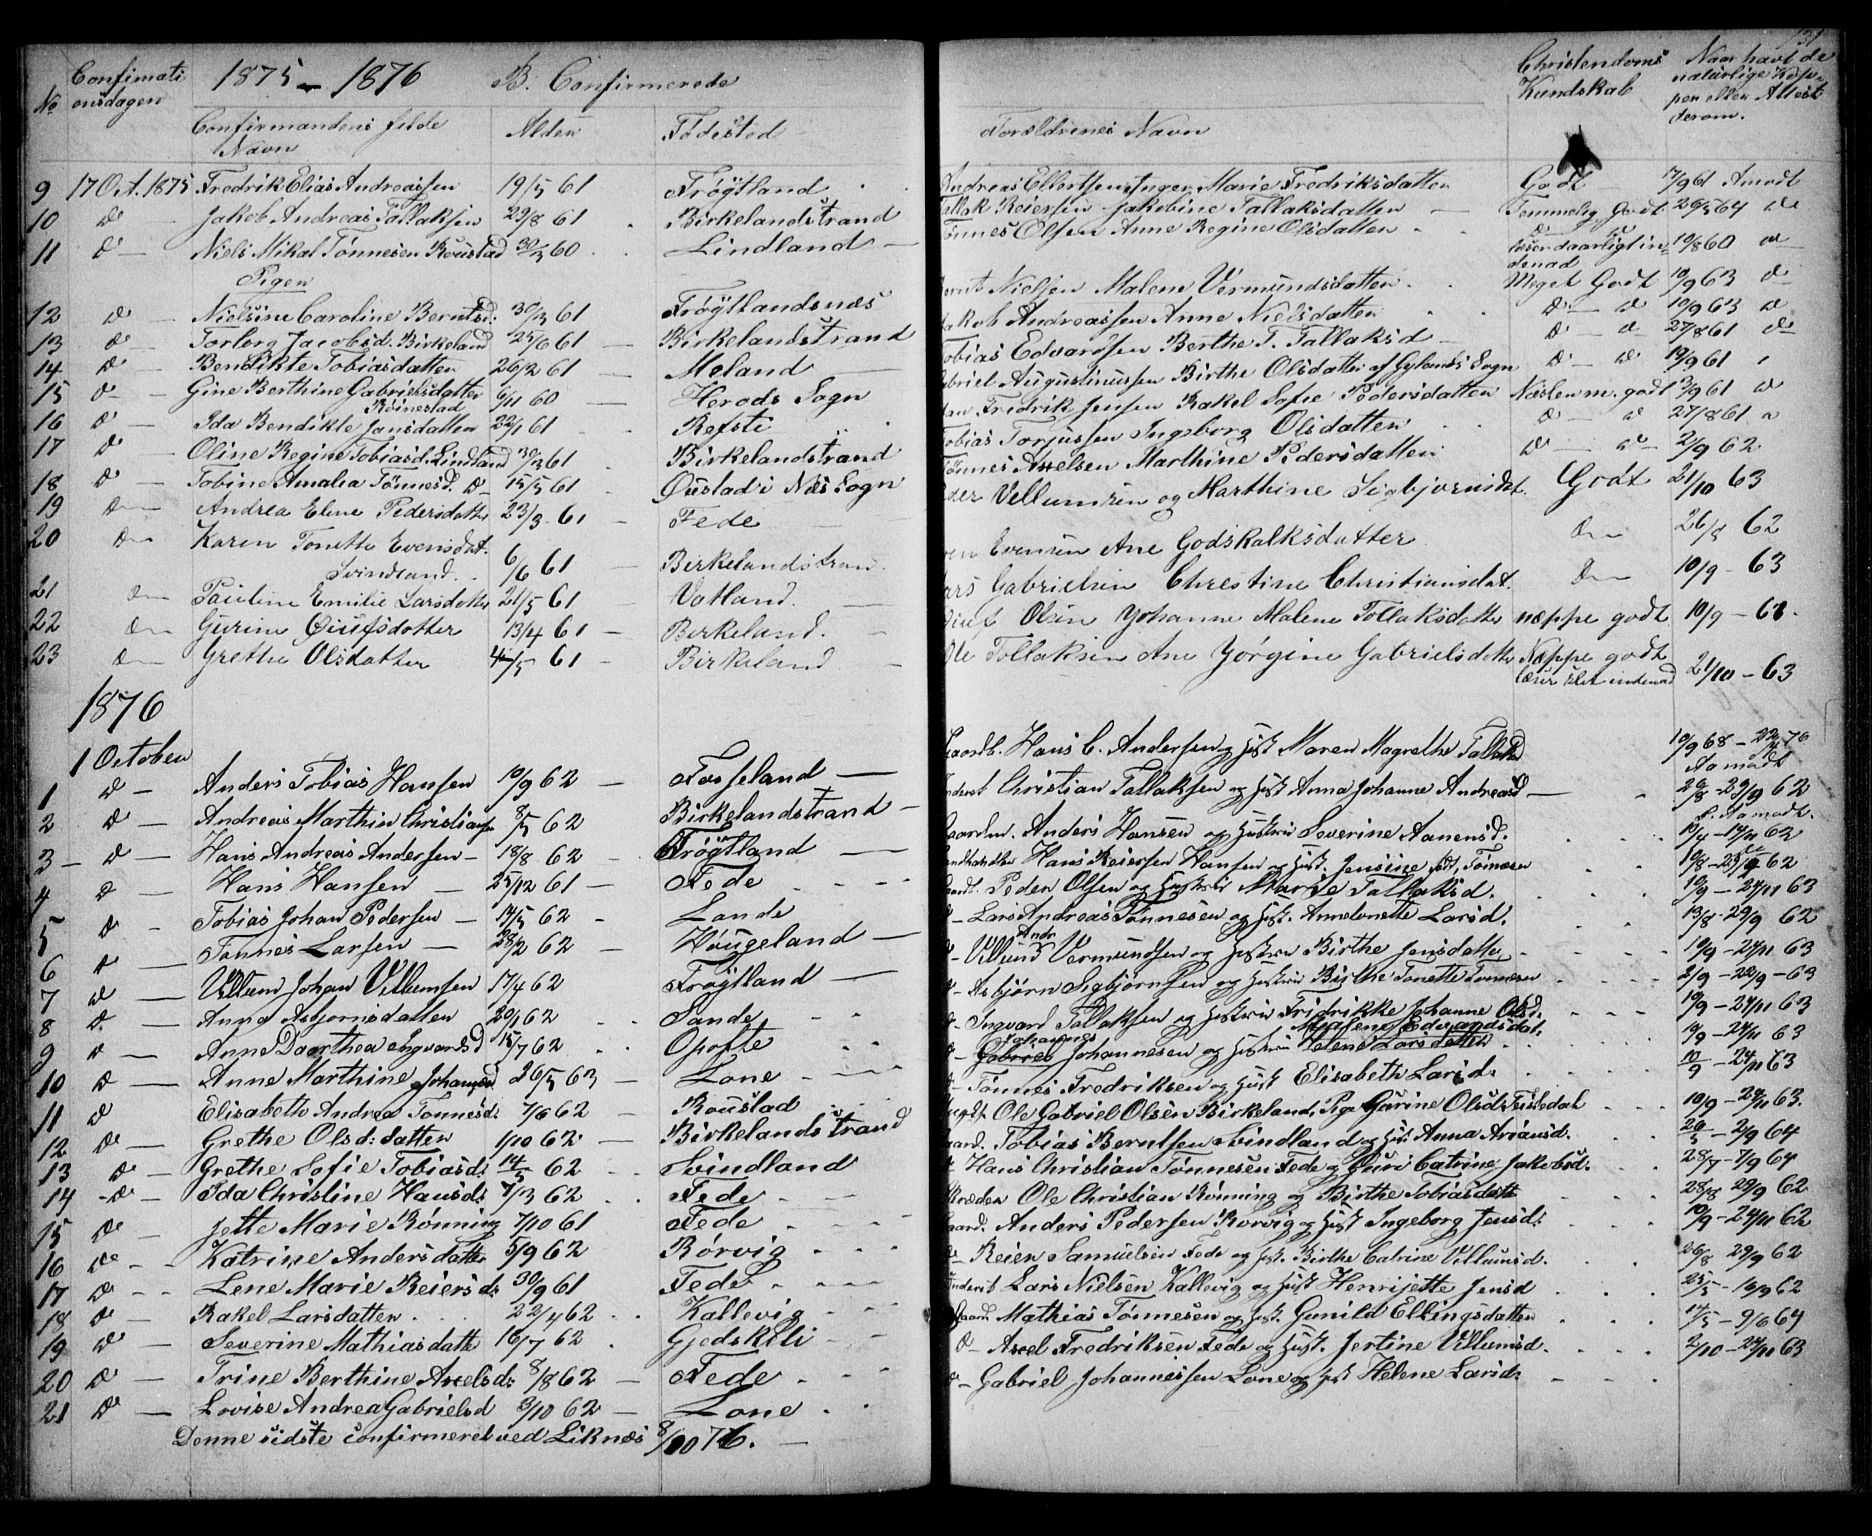 131
No Confimati onsdagen 1875 – 1876 B. Confirmerede
Confirmandens fulde Navn Alder Fødested
9 17 Oct. 1875 Fredrik Elias Andreassen 19/5 61 Frøytland
10 do Jakob Andreas Tallaksen 29/8 61 Birkelandstrand
11 do Niels Mikal Tønnesen Roustad 30/3 60 Lindland
Pigen
12 do Nielsine Caroline Berntsd. 30/3 61 Frøytlandsnæs
13 do Torborg Jacobsd. Birkeland 25/6 61 Birkelandstrand
14 do Bendikte Tobiasdatter 26/2 61 Moland
15 do Gine Berthine Gabrielsdatter Reinestad 6/11 60 Herods Sogn
16 do Ida Bendikte Jansdatter 22/1 61 Refsti
17 do Oline Regine Tobiasd. Lindland 30/3 61 Birkelandstrand
18 do Tobine Amalia Tønnesd. do 15/5 61 Øustad i Næs Sogn
19 do Andrea Eline Pedersdatter 23/3 61 Fede
20 do Karen Tonette Evensdat.
Svindland 6/6 61 Birkelandstrand
21 do Pauline Emilie Larsdatter 21/5 61 Vatland
22 do Gurine Øiufsdotter 13/4 61 Birkeland
23 do Grethe Olsdatter 4/5 61 Birkeland
1876
1 October
1 do Anders Tobias Hansen 10/9 62 Fosseland
2 do Andreas Marthin Christiansen 8/5 62 Birkelandstrand
3 do Hans Andreas Andersen 18/8 62 Frøytland
4 do Hans Hansen 25/12 61 Fede
5 do Tobias Johan Pedersen 14/5 62 Lande
6 do Tønnes Larsen 28/2 62 Høugeland
7 do Villum Johan Villumsen 17/4 62 Frøytland
8 do Anna Asbjørnsdatter 20/1 62 Sande
9 do Anne Dorthea Ingvardsd 15/7 62 Opofte
10 do Anne Marthine Johannesd 26/3 63 Lone
11 do Elisabeth Andrea Tønnesd: 7/6 62 Roustad
12 do Grethe Olsd: datter 1/10 62 Birkelandstrand
13 do Grethe Sofie Tobiasd: 14/5 62 Svindland
14 do Ida Christine Hansd: 7/3 62 Fede
15 do Jette Marie Rønning 7/10 61 Fede
16 do Katrine Andersdatter 5/9 62 Rørvig
17 do Lene Marie Reiersd: 30/9 61 Fede
18 do Rakel Larsdatter 22/4 62 Kallevig
19 do Severine Mathiasdatter 16/7 62 Gjedskili
20 do Trine Berthine Axelsd: 8/8 62 Fede
21 do Lovise Andrea Gabrielsd 3/10 62 Lone
Denne sidste confirmeret ved Liknæs 8/10 76.
Foreldrenes Navn Christendoms Kundskab Naar havt de natürlige Kopper eller Attest derom.
Andreas Ellertsen Inger Marie Fredriksdatter Godt 7/9 61 Amodt
Tallak Reiersen Jakobine Tallaksdatter Temmelig Godt 26/5 64 do
Tønnes Olsen Anne Regine Olsdatter do do læser daarligt indenad 10/8 60 do
Bernt Nielsen Malene Vermundsdatter Meget Godt 10/9 63 do
Jakob Andreassen Anne Nielsdatter do do 10/9 63 do
Tobias Edvardsen Berthe T. Tallaksd do do 27/8 61 do
Gabriel Augustinussen Birthe Olsdatter af Gylands Sogn do do 19/9 61
Jan Fredrik Jensen Rakel Sofie Pedersdatter Næsten m. godt 3/9 61 do
Tobias Torjussen Ingeborg Olsdatter do do 27/8 61
Tønnes Axelsen Marthine Pedersdatter do do 2/9 62
Peder Villumsen og Marthine Sigbjørnsdt. Godt 21/10 63
Even Evensen Ane Godskalksdatter do 26/8 62
Lars Gabrielsen Chrestine Christiansdat. do 10/9 – 63
Øiuf Olsen Johanne Malene Tollaksdatter næppe godt 10/9 – 61
Ole Tollaksen Ane Jørgine Gabrielsdatter Næppe godt
læser slet indenad 21/10 – 63
Gaardb. Hans C. Andersen og Hust Maren Magrethe Tallaksd 10/9 68 – 22/9 76 Aamodt
Inderst Christian Tallaksen og Hust Anna Johanne Andreasd 20/8 – 29/9 62 Aamodt
Gaardm. Anders Hansen og Hustru Severine Aanensd.
Landhandler Hans Reiersen Hansen og Hust. Jensine født Tønnesen
Gaardb. Peder Olsen og Hustru Marie Tallaksd. 10/9 – 24/11 63
do – Lars Andreas Tønnesen og Hust. Annetonette Larsd. 13/8 – 29/9 62
Andr
do – Villum Vermundsen og Hustru Birthe Jensdatter 10/9 – 24/11 63
do – Asbjørn Sigbjørnsen og Hustru Birthe Tonette Tønnesen 2/9 – 22/9 – 63
do – Ingvard Tallaksen og Hustru Fridrikke Johanne Olsd. 10/9 – 24/11 63
Johannes Edvardsdat.
do – Gabriel Johannesen og Hustru Helene Larsdatter 10/9 – 24/11 63
do – Tønnes Fredriksen og Hust Elisabeth Larsd: 10/9 – 24/11 63
Ungdt Ole Gabriel Olsen Birkeland, Pige Gurine Olsd: Tistedal 10/9 – 24/11 63.
Gaard. Tobias Berntsen Svindland og Hust: Anna Ariansd. 20/5 – 2/9 64
do Hans Christian Tønnesen Fede og Guri Catrine Jakobsd. 28/7 – 7/9 64
Skræder Ole Christian Rønning og Birthe Tobiasdatt 28/8 29/9 62
Gaard. Anders Pedersen Rørvig og Hust Ingeborg Jensd: 10/9 – 24/11 62
do – Reier Samuelsen Fede og Hst. Birthe Catrine Villumsd. 26/8 29/9 62
Inderst Lars Nielsen Kallevig og Hust Henrijette Jensd 25/5 – 10/9 62
Gaard. Mathias Tønnesen og Hst. Gunild Ellingsdatter 14/5 – 9/6 64
do – Axel Fredriksen Fede og Hust. Jertine Villumsd. 2/10 – 24/11 63
do – Gabriel Johannessen Lone og Hst Helene Larsd: